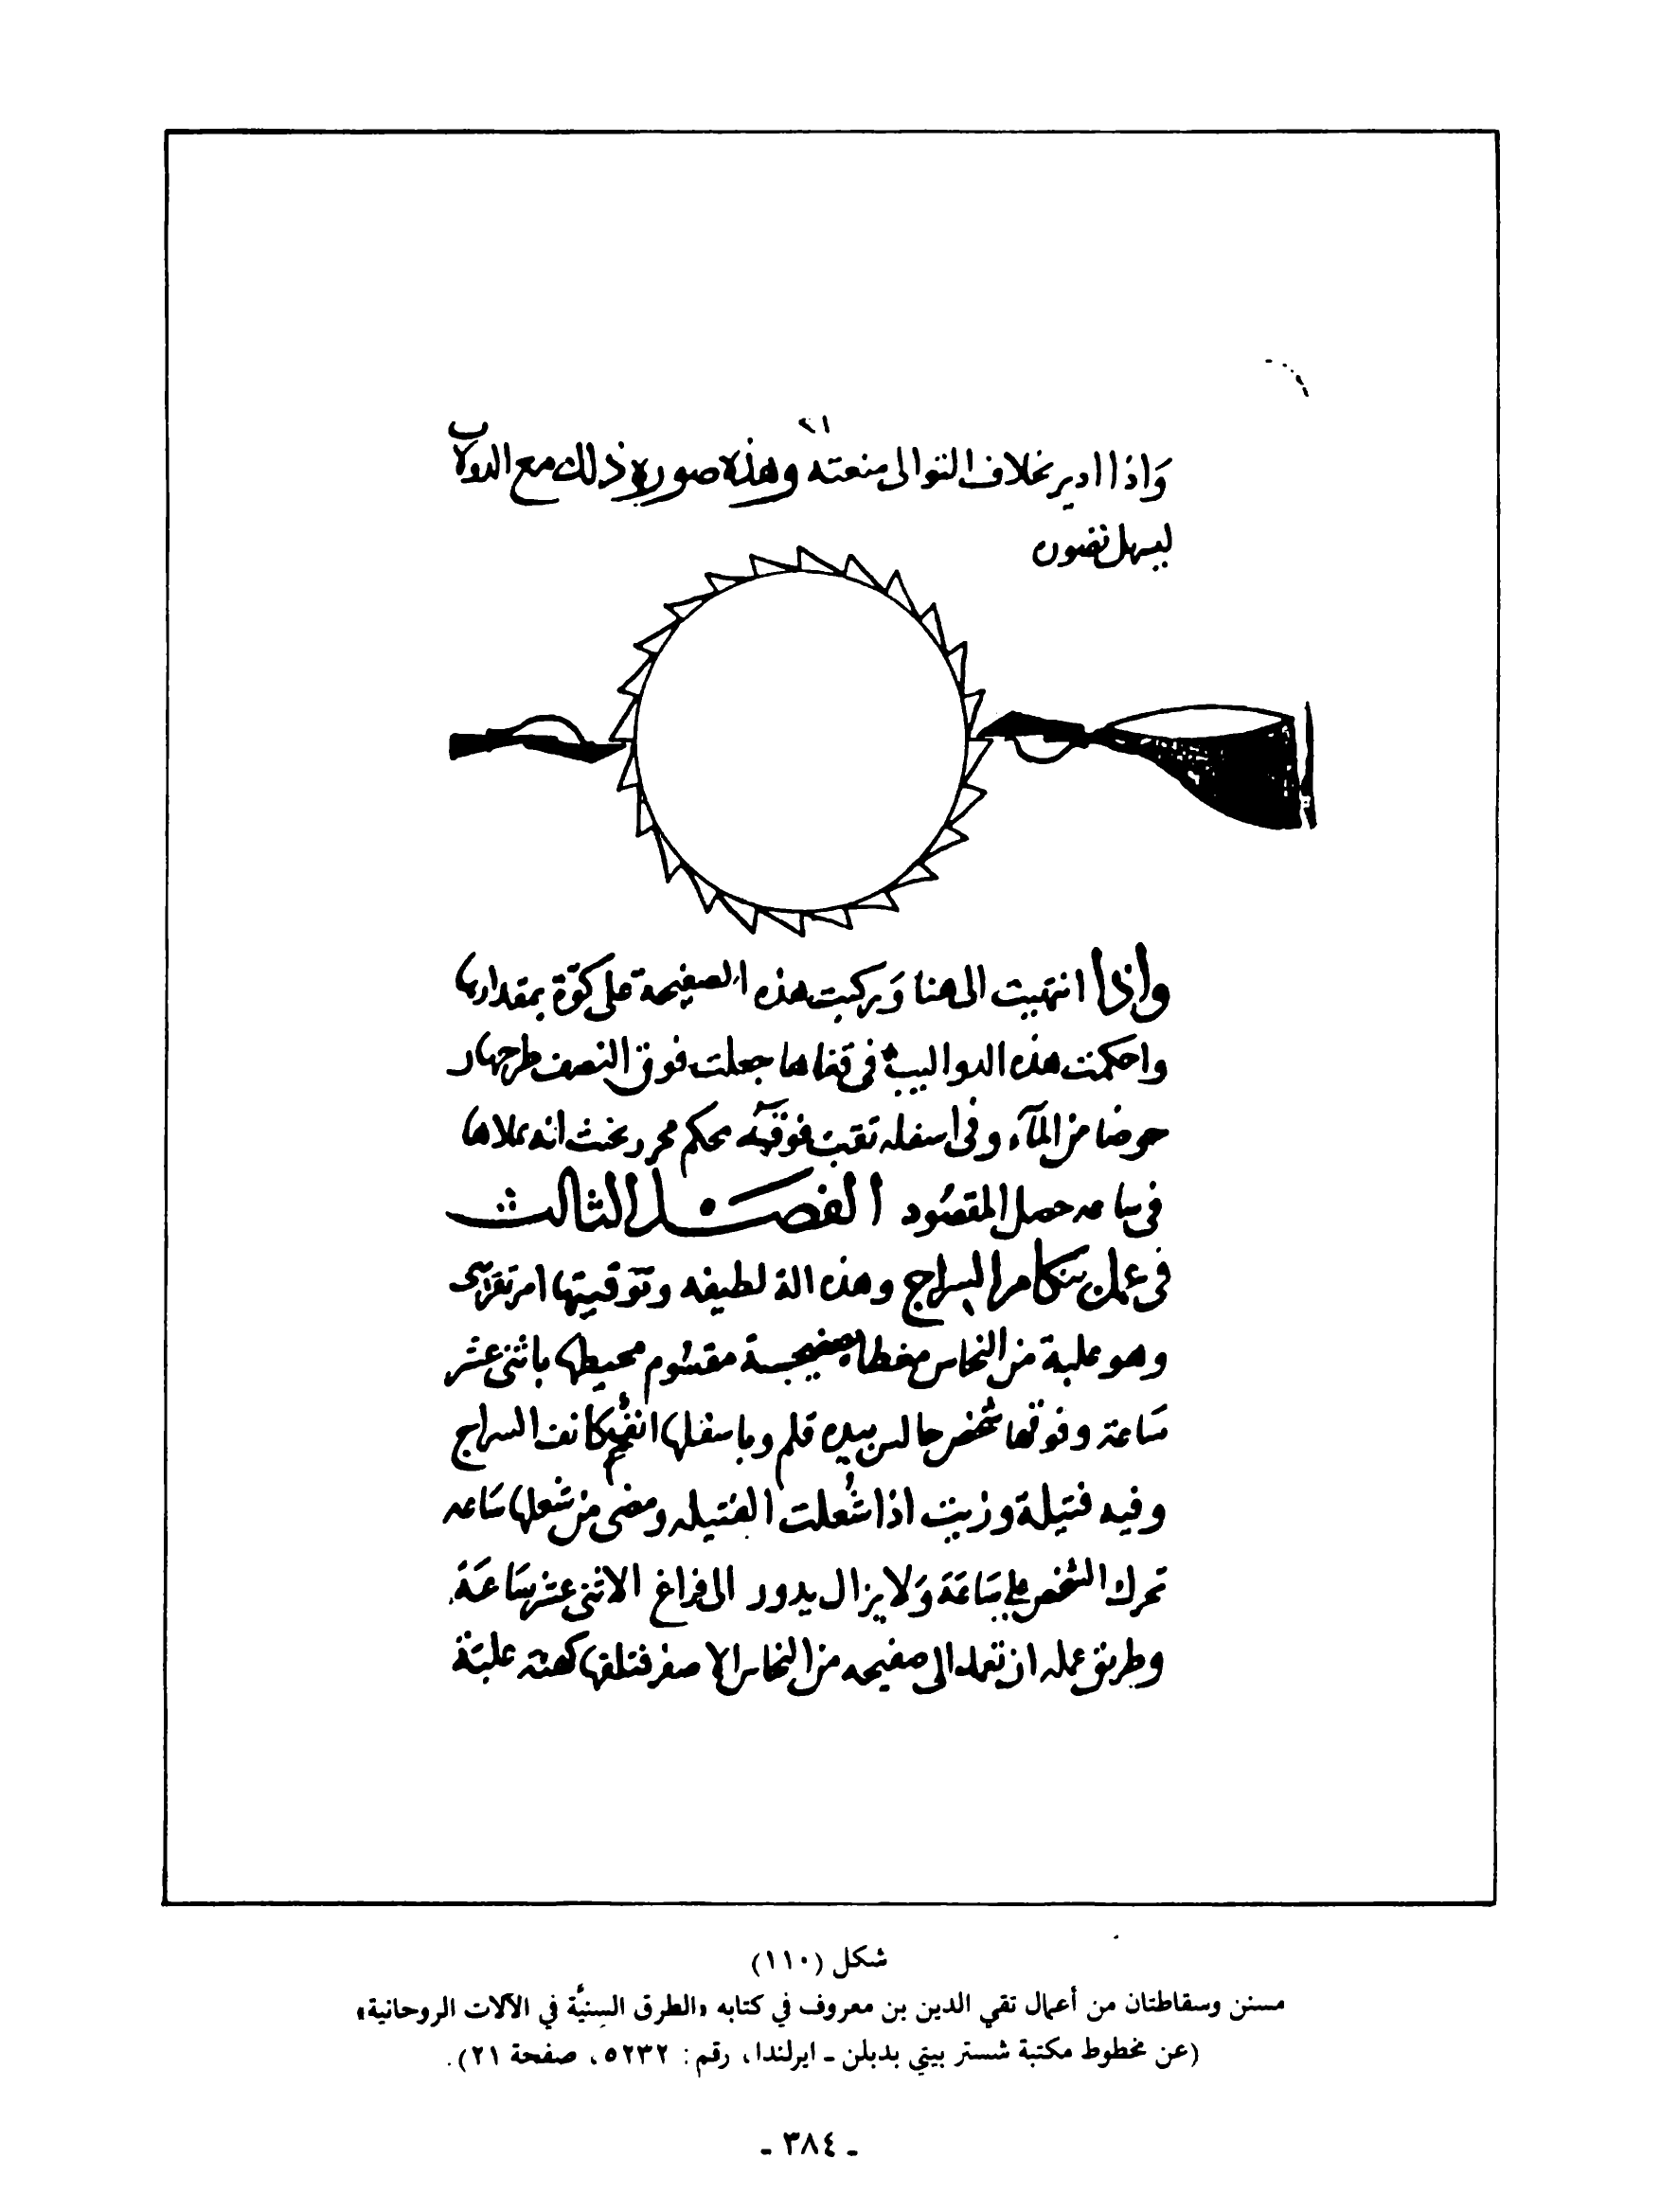 ٢١
واذا ادير بخلاف التوالى منعته وهذه صورة ذلك مع الدولاب
ليسهل تصوره
واذا انتهيت الى هنا وركبت هذه الصفيحة على كوّة بمقدارها
واحكمت هذه الدواليب فى قفاها جعلت فوق النصف طرجهار
حوضا من المآء وفى اسفله ثقب فوقه محكم محرر بحيث انه يملاها
فى ساعه حصل المقصُود الفصل الثالث
فى عمل بنكام السراج وهذه الة لطيفه وتوقيتها امر تقريبى
وهو علبة من النحاس مغطاه بصفيحة مقسُوم محيطها باثنى عشر
سَاعة وفوقها شخص جالس بيده قلم وباسفلها انف كانف السراج
وفيه فتيلة وزيت اذا شُعلت الفتيله ومضى من شعلها سَاعه
تحرك الشخص على سَاعَة وَلا يزال يدور الى فراغ الاثنى عشر سَاعَة
وطريق عمله ان تعمد الى صفيحه من النحاس الاصفر فتلفها كهئة علبَة
شكل (١١٠)
مسنن وسقاطتان من أعمال تقي الدين بن معروف في كتابه «الطرق السنيَّة في الآلات الروحانية»
(عن مخطوط مكتبة شستر بيتي بدبلن ـ ايرلندا، رقم: ٥٢٣٢، صفحة ٢١).
ـ ٣٨٤ ـ